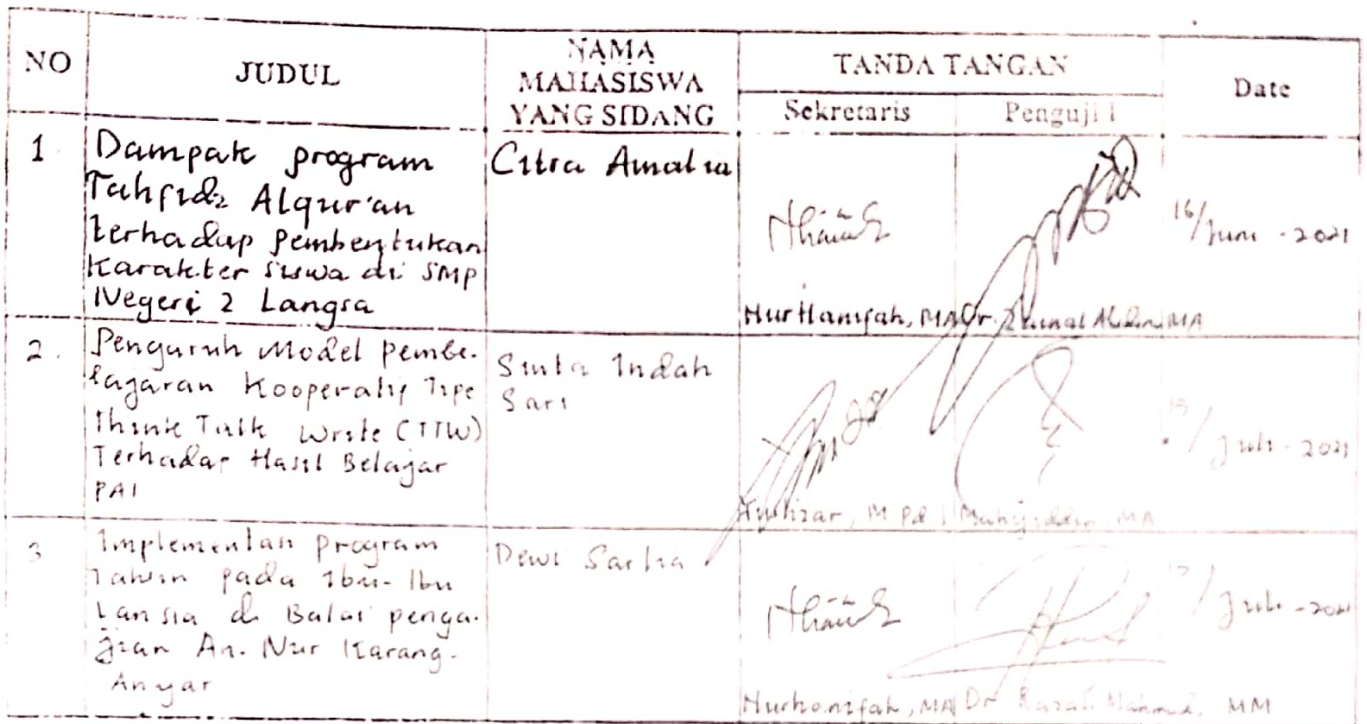 NO
JUDUL
NAMA
MAHASISWA
YANG SIDANG
TANDA TANGAN
Sekretaris
Penguji I
Date
1
Dampak program
Tahfidz Alqur'an
terhadap Pembentukan
Karakter siswa di SMP
Negeri 2 Langsa
Citra Amalia
Nur Hanifah, MA
Dr. Zainal Abidin, MA
16/Juni - 2021
2.
Pengaruh Model pembe-
lajaran Kooperatif Tipe
Think Talk Write (TTW)
Terhadap Hasil Belajar
PAI
Sinta Indah
Sari
M.Pd
Muhyiddin, MA
Juli - 2021
3
Implementasi program
Tahsin pada Ibu-Ibu
Lansia di Balai penga-
jian An-Nur Karang-
Anyar
Dewi
Nurhanifah, MA
Dr. Razali Mahmud, MM
Juli - 2021